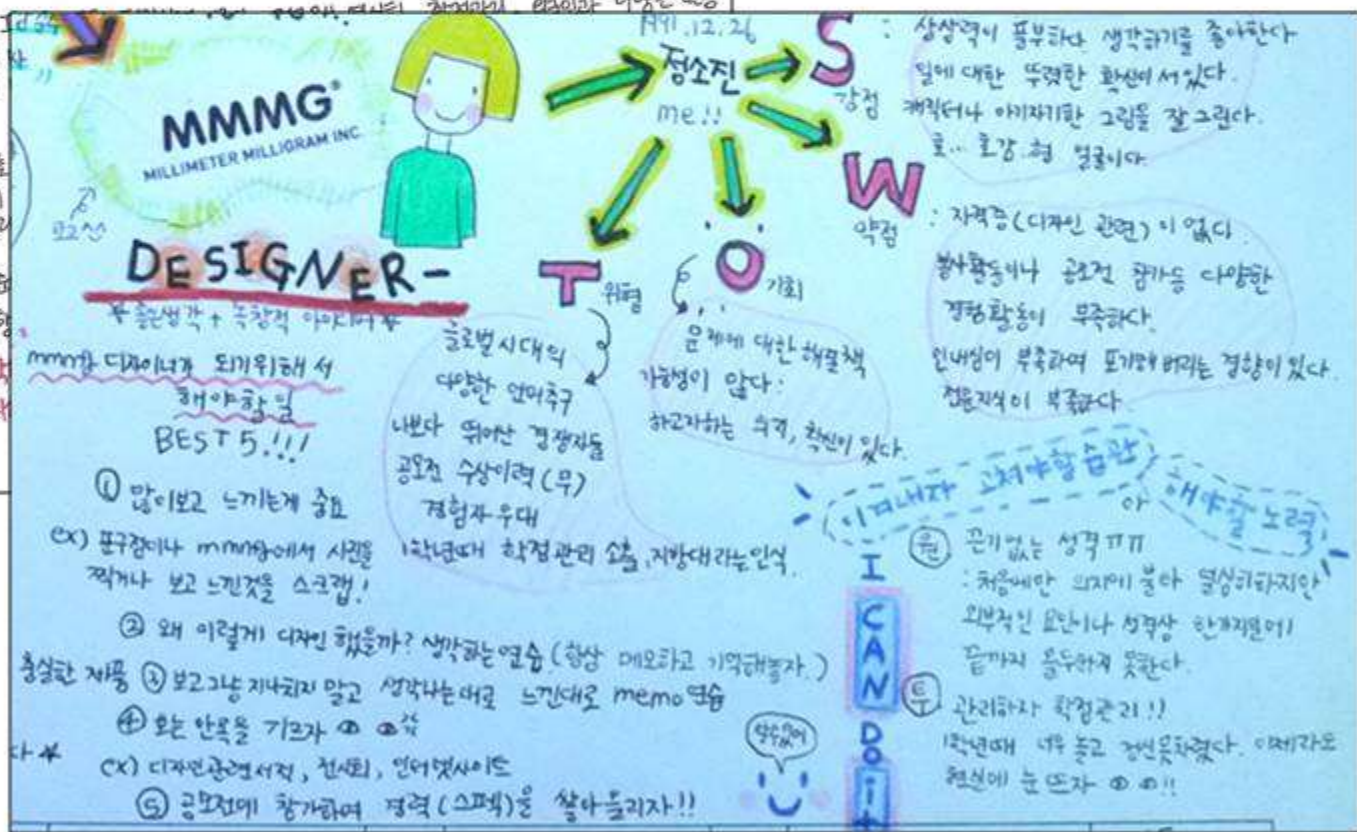 MMMG®
MILLIMETER MILLIGRAM INC.
로고^^
DESIGNER-
*좋은생각 + 독창적 아이디어*
mmmg 디자이너가 되기위해서
해야할일
BEST 5.!!!
① 많이보고 느끼는게 중요
ex) 문구점이나 mmmg에서 사진을
찍거나 보고 느낀것을 스크랩!
② 왜 이렇게 디자인 했을까? 생각하는연습 (항상 메모하고 기억해놓자.)
충실한 제품
③ 보고그냥 지나치지 말고 생각나는대로 느낀대로 memo연습
④ 보는 안목을 기르자
ex) 디자인관련서적, 전시회, 인터넷사이트
⑤ 공모전에 참가하여 경력(스펙)을 쌓아올리자!!
1991.12.26
정소진
me!!
S 강점
: 상상력이 풍부하나 생각하기를 좋아한다
일에 대한 뚜렷한 확신이 서있다.
캐릭터나 아기자기한 그림을 잘 그린다.
호... 호감.형 얼굴이다.
W 약점
: 자격증(디자인 관련)이 없다.
봉사활동이나 공모전 참가등 다양한
경험활동이 부족하다.
인내심이 부족하여 포기해 버리는 경향이 있다.
전문지식이 부족하다
O 기회
문제에 대한 해결책
가능성이 많다:
하고자하는 의지, 확신이 있다.
T 위협
글로벌시대의
다양한 언어추구
나보다 뛰어난 경쟁자들
공모전 수상이력(무)
경험자우대
1학년때 학점관리 소홀, 지방대라는인식.
이겨내자 고쳐야할습관
해야할 노력
I CAN DO it
할수있어
원 끈기없는 성격 ㅠㅠ
: 처음에만 의지에 불타 열심히하지만
외부적인 요인이나 성격상 한가지일에
끝까지 몰두하지 못한다.
투 관리하자 학점관리!!
1학년때 너무 놀고 정신못차렸다. 이제라도
현실에 눈 뜨자 !!